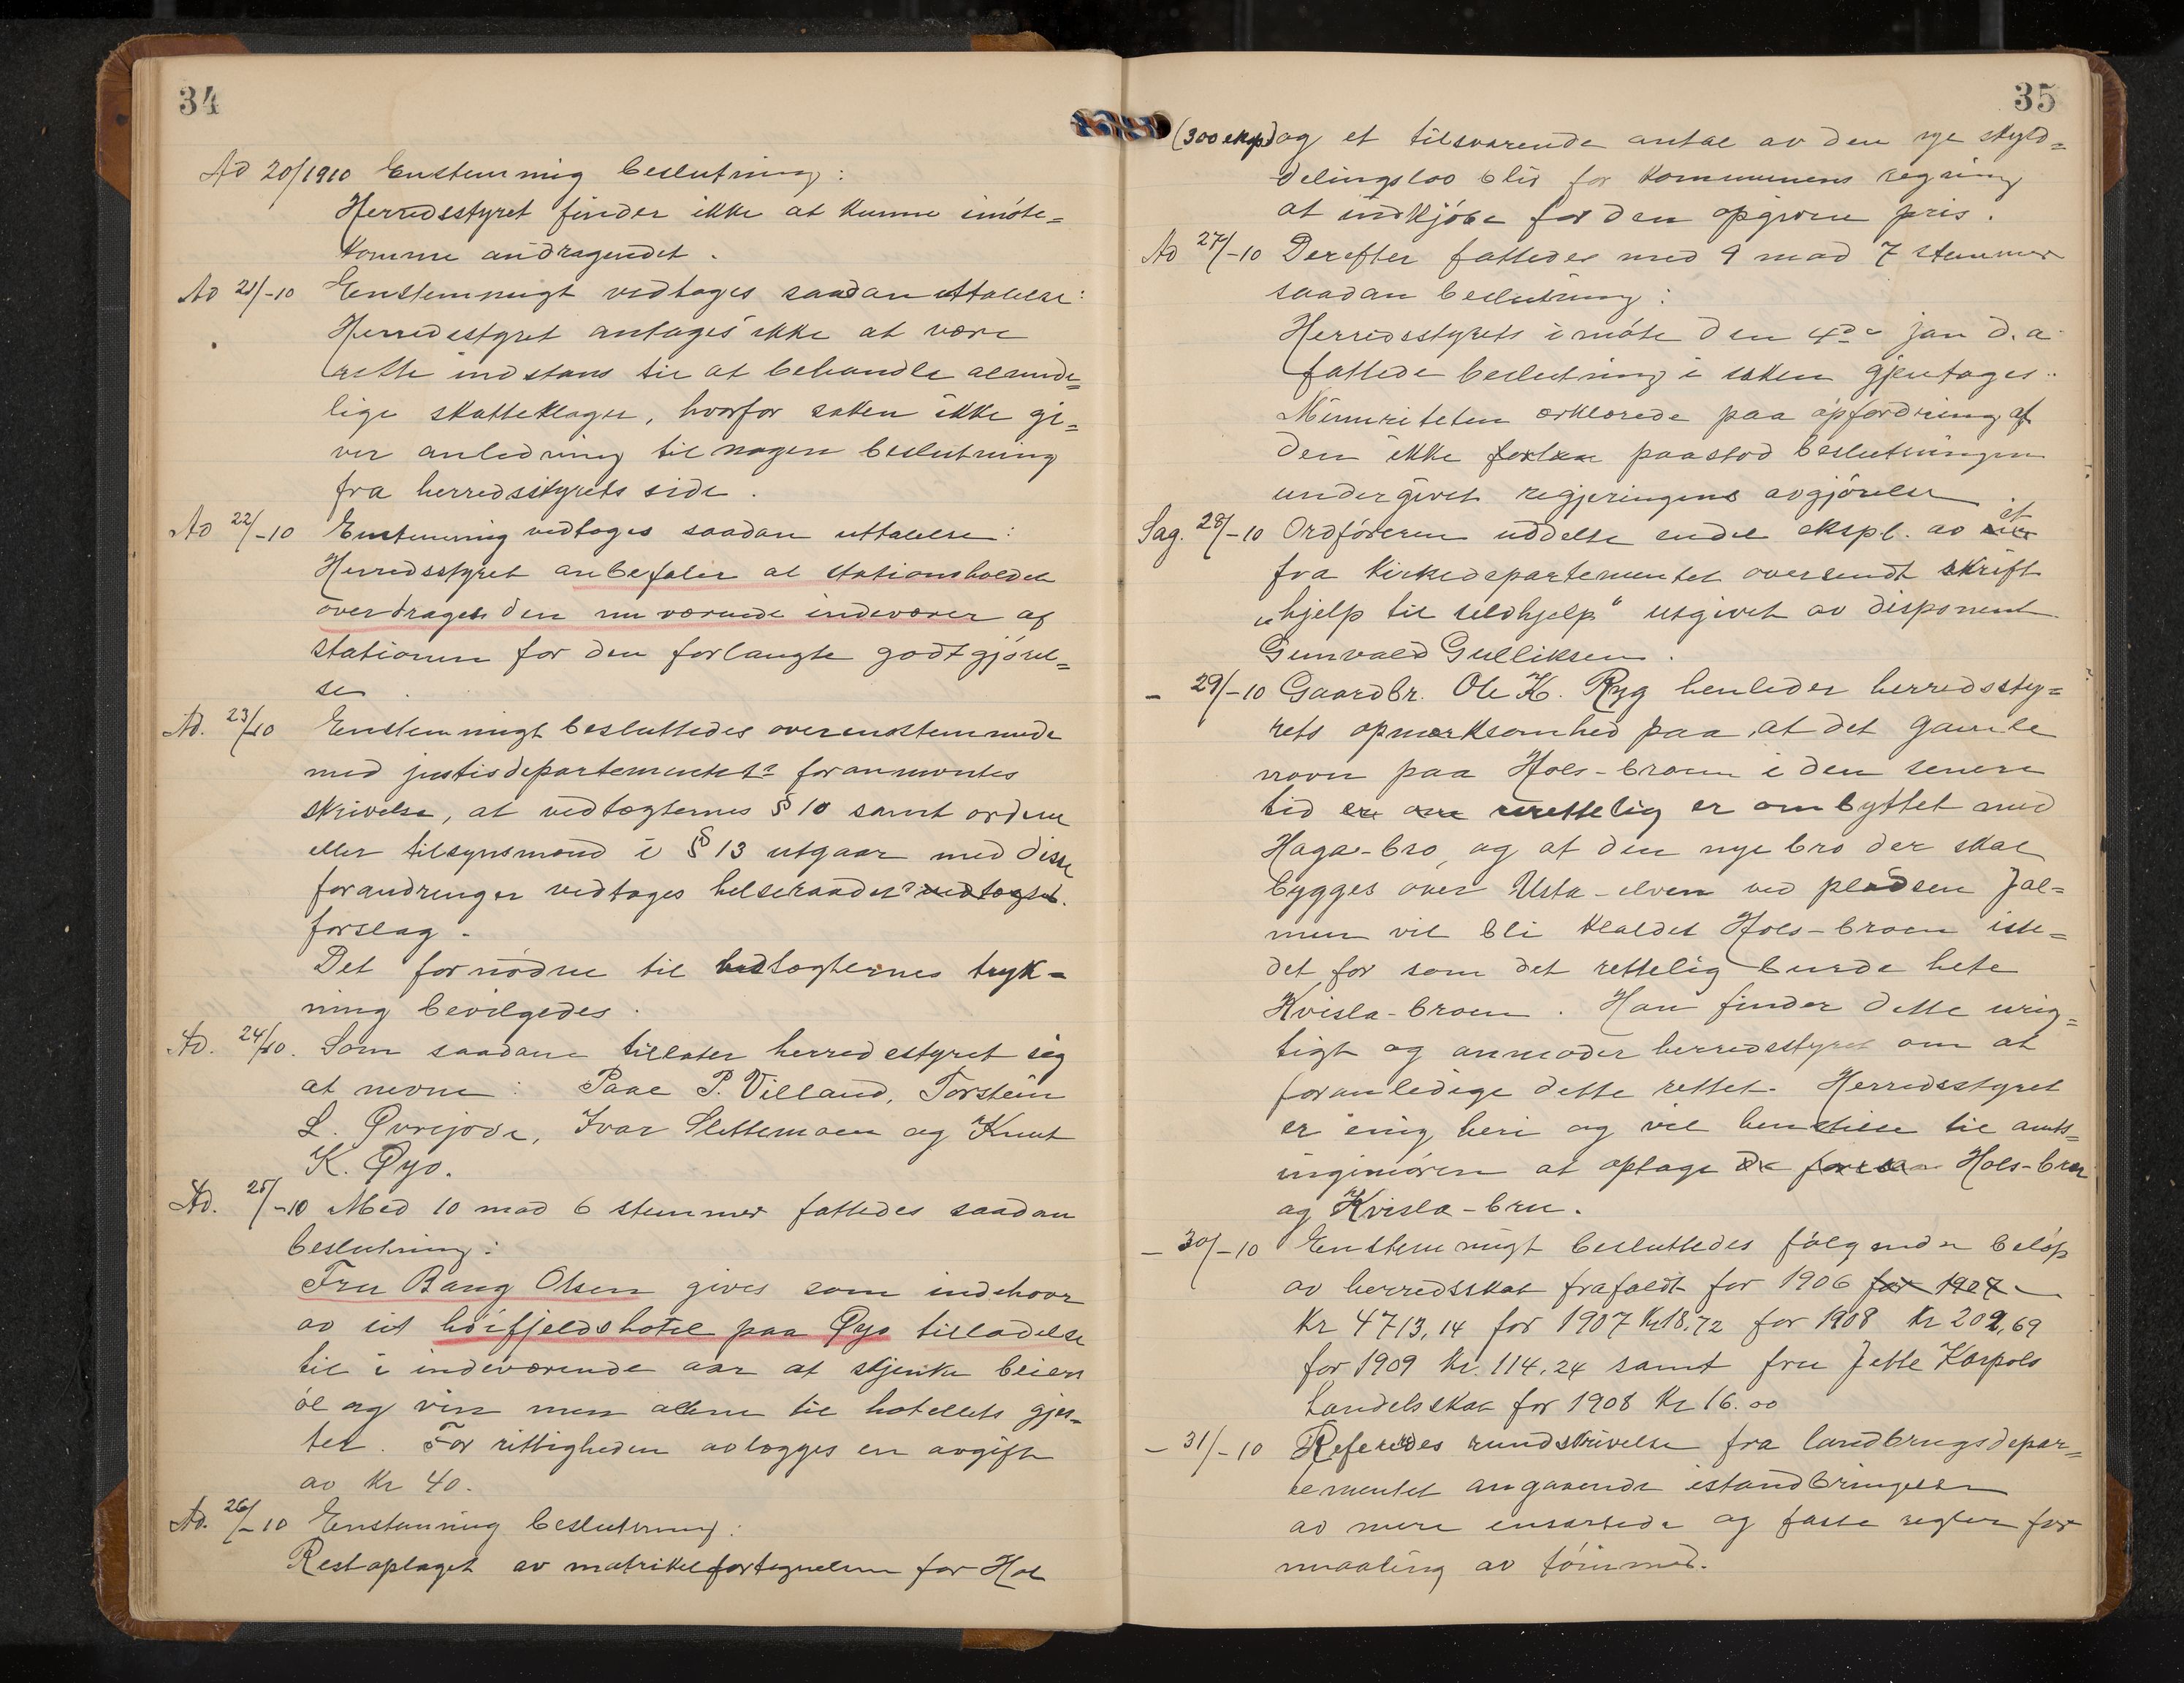 34
Ad 20/1910 Enstemmig beslutning:
Herredsstyret finder ikke at kunne imøte=
komme andragendet.
Ad 21/-10 Enstemmigt vedtoges saadan uttalelse:
Herredsstyret antages ikke at være
rette indstans til at behandle alminde=
lige skatteklager, hvorfor saken ikke gi=
ver anledning til nogen beslutning
fra herredsstyrets side.
Ad 22/-10 Enstemmig vedtoges saadan uttalelse:
Herredsstyret anbefaler at stationsholdet
overdrages den nuværende indevaaner af
stationen for den forlangte godtgjörel=
se.
Ad. 23/10 Enstemmigt besluttedes overensstemmende
med justisdepartementets foranmerkte
skrivelse, at vedtægternes § 10 samt ordene
eller tilsynsmænd i § 13 utgaar med disse
forandringer vedtages helseraadets vedtagset.
forslag.
Det fornødne til vedtægternes tryk=
ning bevilgedes.
Ad. 24/10. Som saadane tillater herredsstyret sig
at nevne: Paal P. Villand, Torstein
L. Øvrejorde, Ivar Slettemoen og Knut
K. Øyo.
Ad. 25/-10 Med 10 mod 6 stemmer fattedes saadan
beslutning:
Fru Bang Olsen gives som indehaver
av sit höifjeldshotel paa Øyo tilladelse
til i indeværende aar at skjenke baiersk
öl og vin men alene til hotellets gjes=
ter. For rettigheden avlægges en avgift
av Kr 40.
Ad. 26/-10 Enstemmig beslutning:
Restoplaget av matrikelfortegnelsen for Hol
35
(300 eksp) og et tilsvarende antal av den nye skyld=
delingslov blir for kommunens regning
at indkjöbe for den opgivne pris.
Ad 27/-10 Derefter fattedes med 9 mod 7 stemmer
saadan beslutning:
Herredsstyrets i möte den 4de jan d.a.
fattede beslutning i saken gjentages.
Minoriteten erklærede paa opfordring at
den ikke forlan paastod beslutningen
undergivet regjeringens avgjörelse.
Sag. 28/-10 Ordföreren uddelte endel ekspl. av et
fra kirkedepartementet oversendt skrift
„hjelp til selvhjelp“ utgivet av disponent
Gunvald Gulliksen.
- 29/-10 Gaardbr. Ole K. Ryg henleder herredssty=
rets opmerksomhed paa, at det gamle
navn paa Hols-broen i den senere
tid er urettelig er ombyttet med
Haga-bro, og at den nye bro der skal
bygges over Usta-elven ved pladsen Jal=
men vil bli kaldet Hols-broen iste=
det for som det rettelig burde hete
Kvisla-broen. Han finder dette urig=
tigt og anmoder herredsstyret om at
foranledige dette rettet. Herredsstyret
er enig heri og vil henstille til amts=
ingeniören at optage Hols-bru
og Kvisla-bru.
- 30/-10 Enstemmigt besluttedes fölgende belöp
av herredsskat frafaldt for 1906 for 1907
Kr 4713,14 for 1907 Kr 18.72 for 1908 Kr 209,69
for 1909 Kr. 114.24 samt fru Jette Karpols
handelsskat for 1908 Kr 16.00
- 31/-10 Refereredes rundskrivelse fra landbrugsdepar=
tementet angaaende istandbringelsen
av mere ensartede og faste regler for
maaling av tömmer.